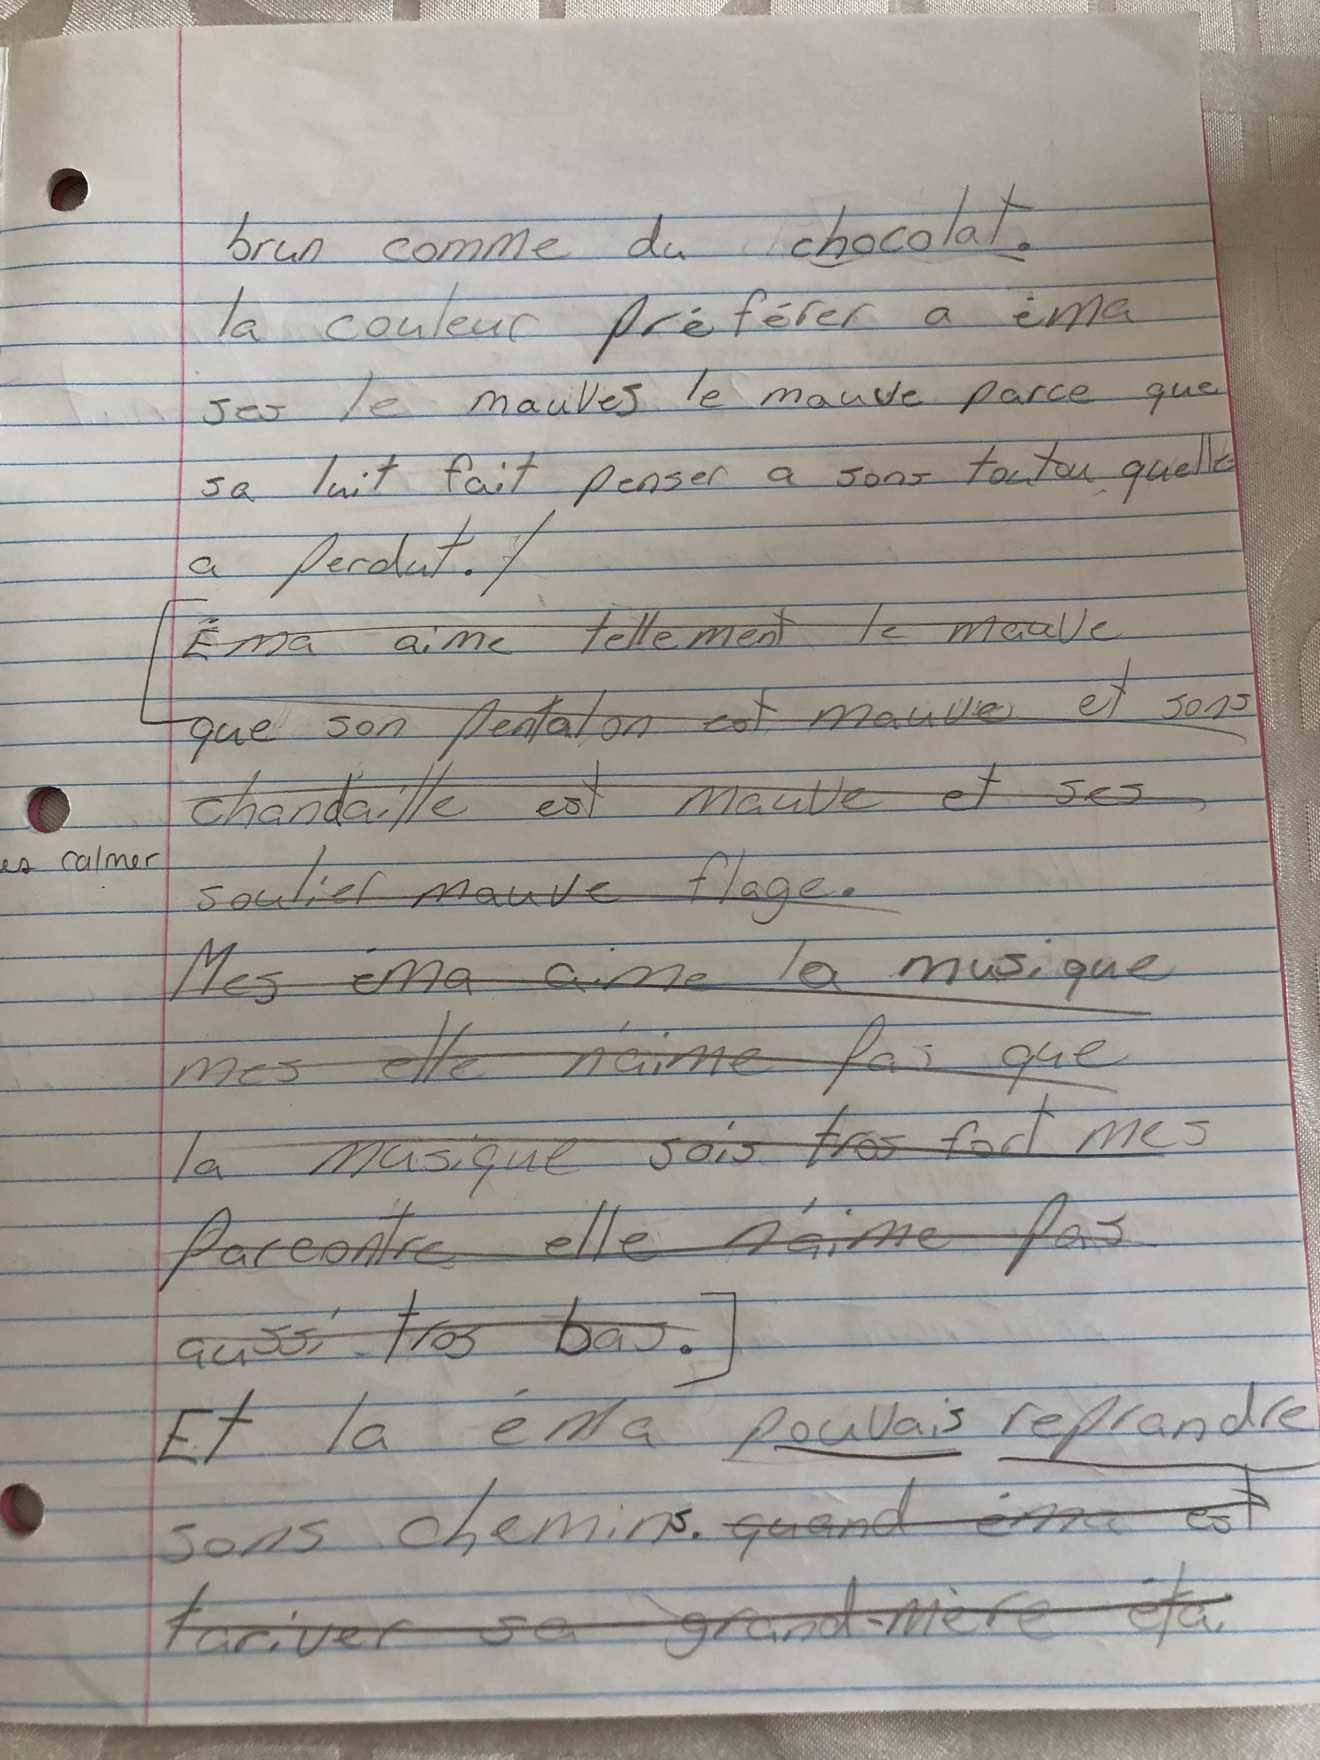 brun comme du chocolat.
la couleur préférer a éma
ses le mauves le mauve parce que
sa luit fait penser a sons toutou quelle
a perdut.
Éma aime tellement le mauve
que son pentalon est mauve et sons
chandaille est mauve et ses
calmer
soulier mauve flage.
Mes éma aime la musique
mes elle n'aime pas que
la musique sois tros fort mes
parcontre elle n'aime pas
aussi tros bas.
Et la éma pouvais reprandre
sons chemins. quand éma est
tariver sa grand-mère éta